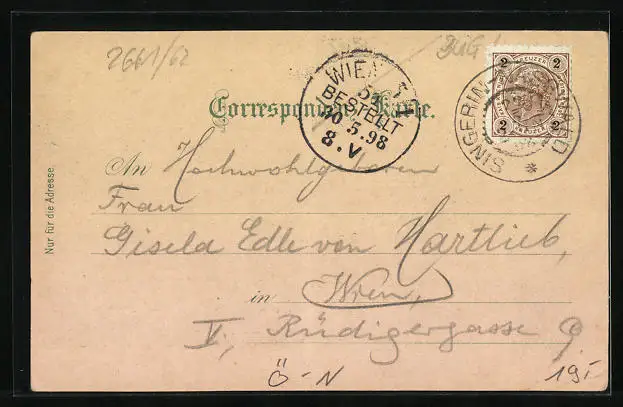 2661/62
WIEN
BESTELLT
30.5.98
8.V
2 KREUZER 2
2 2
SINGERIN
Correspondenz-Karte.
Nur für die Adresse.
An Hochwohlgeboren
Frau
Gisela Edle von Hartlieb,
in Wien,
V, Rüdigergasse 9
Ö-N
19,-